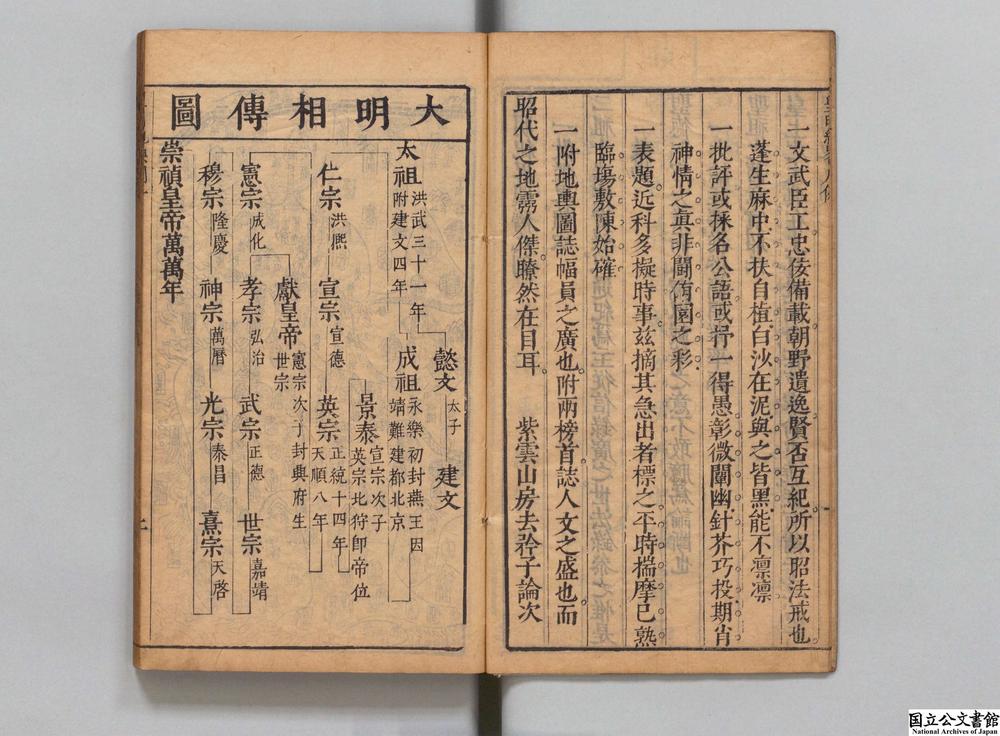 一文武臣工忠佞備載朝野遺逸賢否互紀所以昭法戒也
蓬生麻中不扶自植白沙在泥與之皆黑能不凛凛
一批評或採名公語或抒一得愚彰微闡幽針芥巧投期肖
神情之眞非鬪侑園之彩
一表題近科多擬時事茲摘其急出者標之平時揣摩已熟
臨塲敷陳始確
一附地輿圖誌幅員之廣也附兩榜首誌人文之盛也而
昭代之地霛人傑瞭然在目耳 紫雲山房去矜子論次
大明相傳圖
懿文 太子 建文
太祖 洪武三十一年 附建文四年 成祖 永樂初封燕王因 靖難建都北京
景泰 宣宗次子 英宗北狩卽帝位
仁宗 洪熈 宣宗 宣德 英宗 正統十四年 天順八年
獻皇帝 憲宗次子封興府生 世宗
憲宗 成化 孝宗 弘治 武宗 正德 世宗 嘉靖
穆宗 隆慶 神宗 萬曆 光宗 泰昌 熹宗 天啓
崇禎皇帝萬萬年
国立公文書館
National Archives of Japan